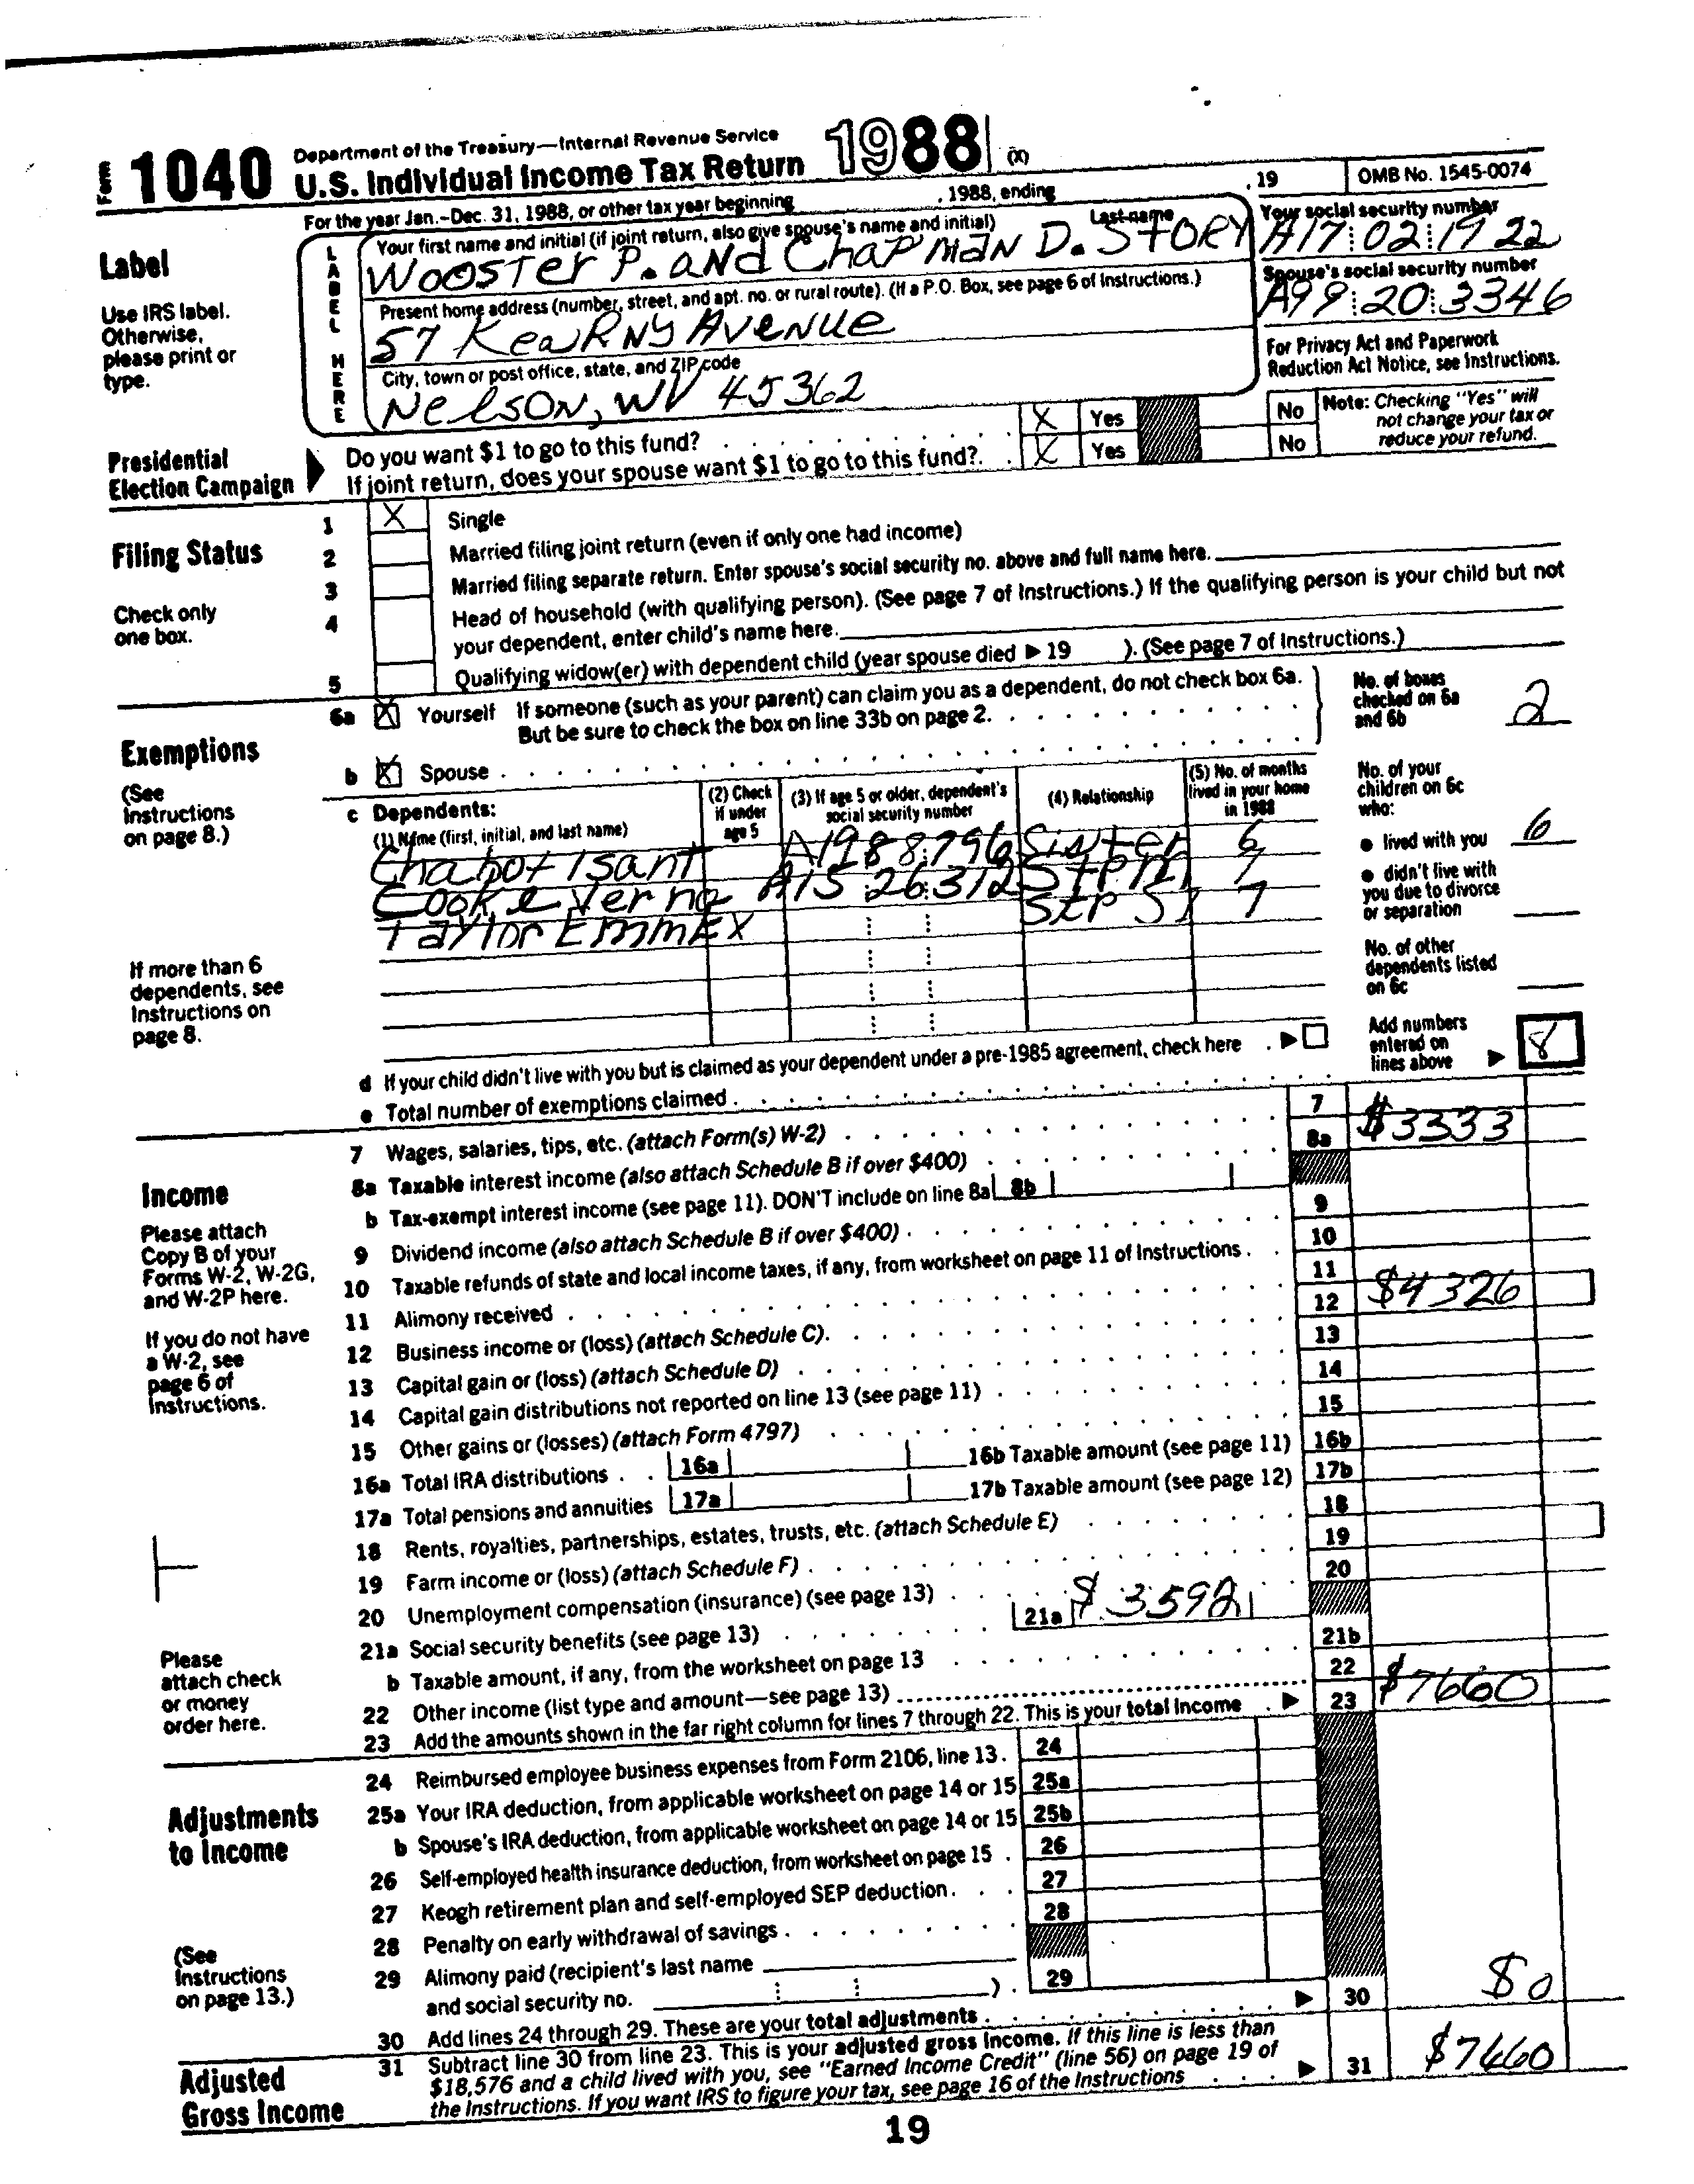 Form 1040 Department of the Treasury—Internal Revenue Service
U.S. Individual Income Tax Return 1988 (X)
For the year Jan.–Dec. 31, 1988, or other tax year beginning , 1988, ending , 19 OMB No. 1545-0074
Label
Use IRS label. Otherwise, please print or type.
LABEL HERE
Your first name and initial (if joint return, also give spouse's name and initial) Last name
Wooster P. and Chapman D. Story
Your social security number
A17 02 1922
Present home address (number, street, and apt. no. or rural route). (If a P.O. Box, see page 6 of Instructions.)
57 Kearny Avenue
Spouse's social security number
A99 20 3346
City, town or post office, state, and ZIP code
Nelson, WV 45362
For Privacy Act and Paperwork Reduction Act Notice, see Instructions.
Presidential Election Campaign
Do you want $1 to go to this fund? X Yes No
If joint return, does your spouse want $1 to go to this fund? X Yes No
Note: Checking "Yes" will not change your tax or reduce your refund.
Filing Status
Check only one box.
1 X Single
2 Married filing joint return (even if only one had income)
3 Married filing separate return. Enter spouse's social security no. above and full name here.
4 Head of household (with qualifying person). (See page 7 of Instructions.) If the qualifying person is your child but not
your dependent, enter child's name here.
5 Qualifying widow(er) with dependent child (year spouse died ▶ 19 ). (See page 7 of Instructions.)
Exemptions
(See Instructions on page 8.)
6a X Yourself If someone (such as your parent) can claim you as a dependent, do not check box 6a.
But be sure to check the box on line 33b on page 2.
b X Spouse
No. of boxes checked on 6a and 6b 2
c Dependents:
(1) Name (first, initial, and last name)
(2) Check if under age 5
(3) If age 5 or older, dependent's social security number
(4) Relationship
(5) No. of months lived in your home in 1988
Chabot Isant A19 88 796 Sister 6
Cooke Verna A15 26 312 7
Taylor Emm EX 7
No. of your children on 6c who:
● lived with you 6
● didn't live with you due to divorce or separation
No. of other dependents listed on 6c
If more than 6 dependents, see Instructions on page 8.
d If your child didn't live with you but is claimed as your dependent under a pre-1985 agreement, check here ▶
e Total number of exemptions claimed
Add numbers entered on lines above ▶ 8
Income
Please attach Copy B of your Forms W-2, W-2G, and W-2P here.
If you do not have a W-2, see page 6 of Instructions.
Please attach check or money order here.
7 Wages, salaries, tips, etc. (attach Form(s) W-2) 7 $3333
8a Taxable interest income (also attach Schedule B if over $400) 8a
b Tax-exempt interest income (see page 11). DON'T include on line 8a 8b
9 Dividend income (also attach Schedule B if over $400) 9
10 Taxable refunds of state and local income taxes, if any, from worksheet on page 11 of Instructions 10
11 Alimony received 11
12 Business income or (loss) (attach Schedule C) 12 $4326
13 Capital gain or (loss) (attach Schedule D) 13
14 Capital gain distributions not reported on line 13 (see page 11) 14
15 Other gains or (losses) (attach Form 4797) 15
16a Total IRA distributions 16a 16b Taxable amount (see page 11) 16b
17a Total pensions and annuities 17a 17b Taxable amount (see page 12) 17b
18 Rents, royalties, partnerships, estates, trusts, etc. (attach Schedule E) 18
19 Farm income or (loss) (attach Schedule F) 19
20 Unemployment compensation (insurance) (see page 13) 20
21a Social security benefits (see page 13) 21a $3592
b Taxable amount, if any, from the worksheet on page 13 21b
22 Other income (list type and amount—see page 13) 22
23 Add the amounts shown in the far right column for lines 7 through 22. This is your total income ▶ 23 $7660
Adjustments to Income
(See Instructions on page 13.)
24 Reimbursed employee business expenses from Form 2106, line 13 24
25a Your IRA deduction, from applicable worksheet on page 14 or 15 25a
b Spouse's IRA deduction, from applicable worksheet on page 14 or 15 25b
26 Self-employed health insurance deduction, from worksheet on page 15 26
27 Keogh retirement plan and self-employed SEP deduction 27
28 Penalty on early withdrawal of savings 28
29 Alimony paid (recipient's last name
and social security no. ) 29
30 Add lines 24 through 29. These are your total adjustments ▶ 30 $0
Adjusted Gross Income
31 Subtract line 30 from line 23. This is your adjusted gross income. If this line is less than
$18,576 and a child lived with you, see "Earned Income Credit" (line 56) on page 19 of
the Instructions. If you want IRS to figure your tax, see page 16 of the Instructions ▶ 31 $7660
19